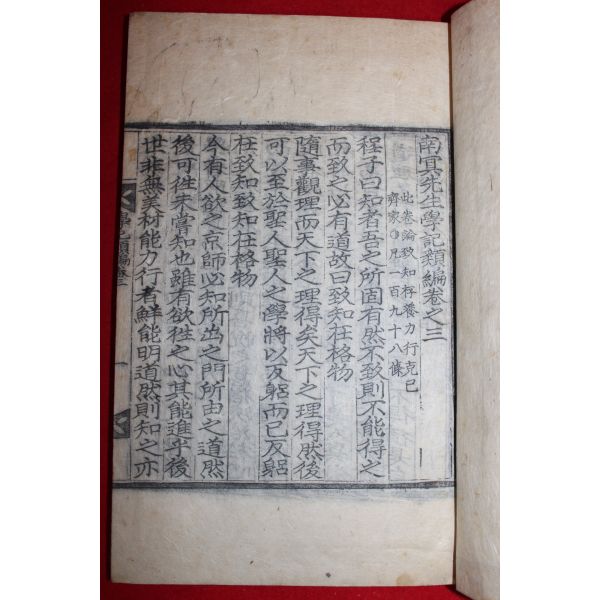 南冥先生學記類編卷之三
此卷論致知存養力行克己
齊家○凡一百九十八條
程子曰知者吾之所固有然不致則不能得之
而致之必有道故曰致知在格物
隨事觀理而天下之理得矣天下之理得然後
可以至於聖人聖人之學將以反躬而已反躬
在致知致知在格物
今有人欲之京師必知所出之門所由之道然
後可徃未嘗知也雖有欲徃之心其能進乎後
世非無美材能力行者鮮能明道然則知之亦
學記類編卷三